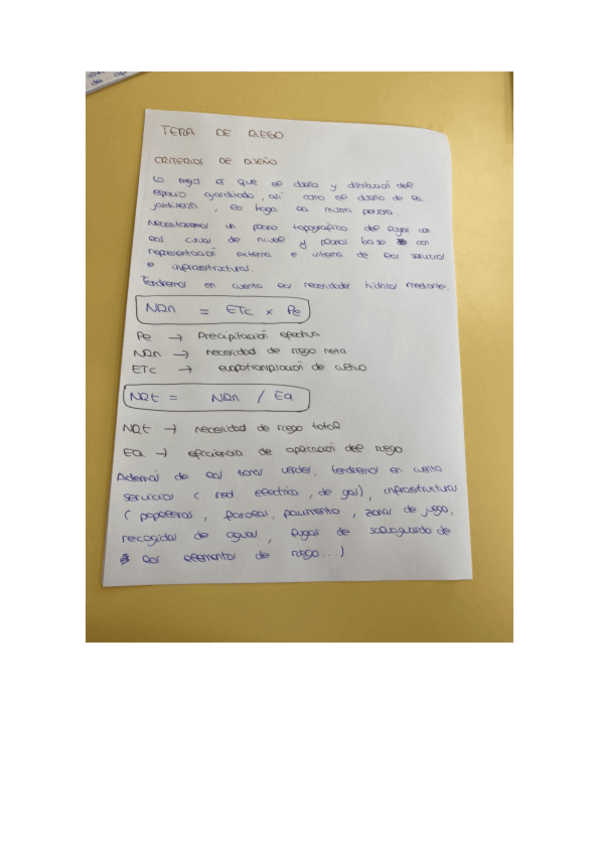 TEMA DE RIEGO
CRITERIOS DE DISEÑO
Lo mejor es que el diseño y distribución del
espacio ajardinado, así como el diseño de la
jardinería, lo haga la misma persona.
Necesitaremos un plano topográfico del lugar con
las curvas de nivel y planos base con
representación externa e interna de los servicios
e infraestructuras.
Tendremos en cuenta las necesidades hídricas mediante:
NRn = ETc x Pe
Pe → Precipitación efectiva
NRn → necesidad de riego neta
ETc → evapotranspiración de cultivo
NRt = NRn / Ea
NRt → necesidad de riego total
Ea → eficiencia de aplicación del riego
Además de las zonas verdes, tendremos en cuenta
servicios (red eléctrica, de gas), infraestructuras
(papeleras, farolas, pavimento, zonas de juego,
recogidas de aguas, lugar de salvaguardo de
los elementos de riego...)